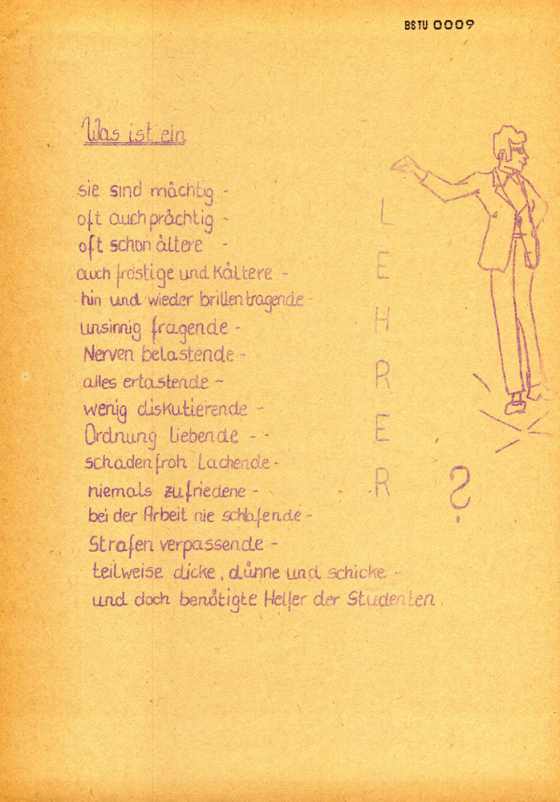 BSTU 0009
Was ist ein
sie sind mächtig -
oft auch prächtig -
oft schon ältere -
auch frostige und Kältere -
hin und wieder brillentragende -
unsinnig fragende -
Nerven belastende -
alles ertastende -
wenig diskutierende -
Ordnung liebende - -
schadenfroh Lachende -
niemals zufriedene -
bei der Arbeit nie schlafende -
Strafen verpassende -
teilweise dicke, dünne und schicke -
und doch benötigte Helfer der Studenten.
L
E
H
R
E
R
?